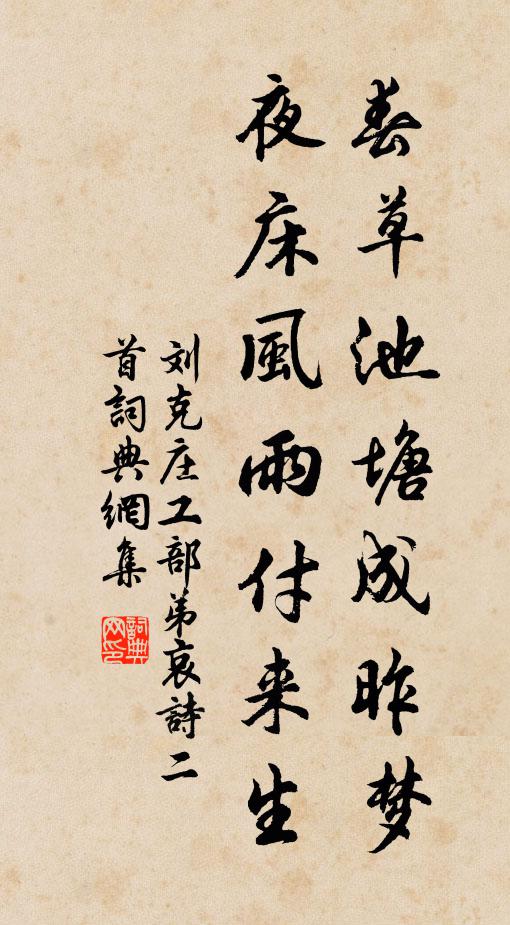 春草池塘成昨梦
夜床風雨付来生
刘克庄工部弟哀詩二
首詞典網集
詞典
网印